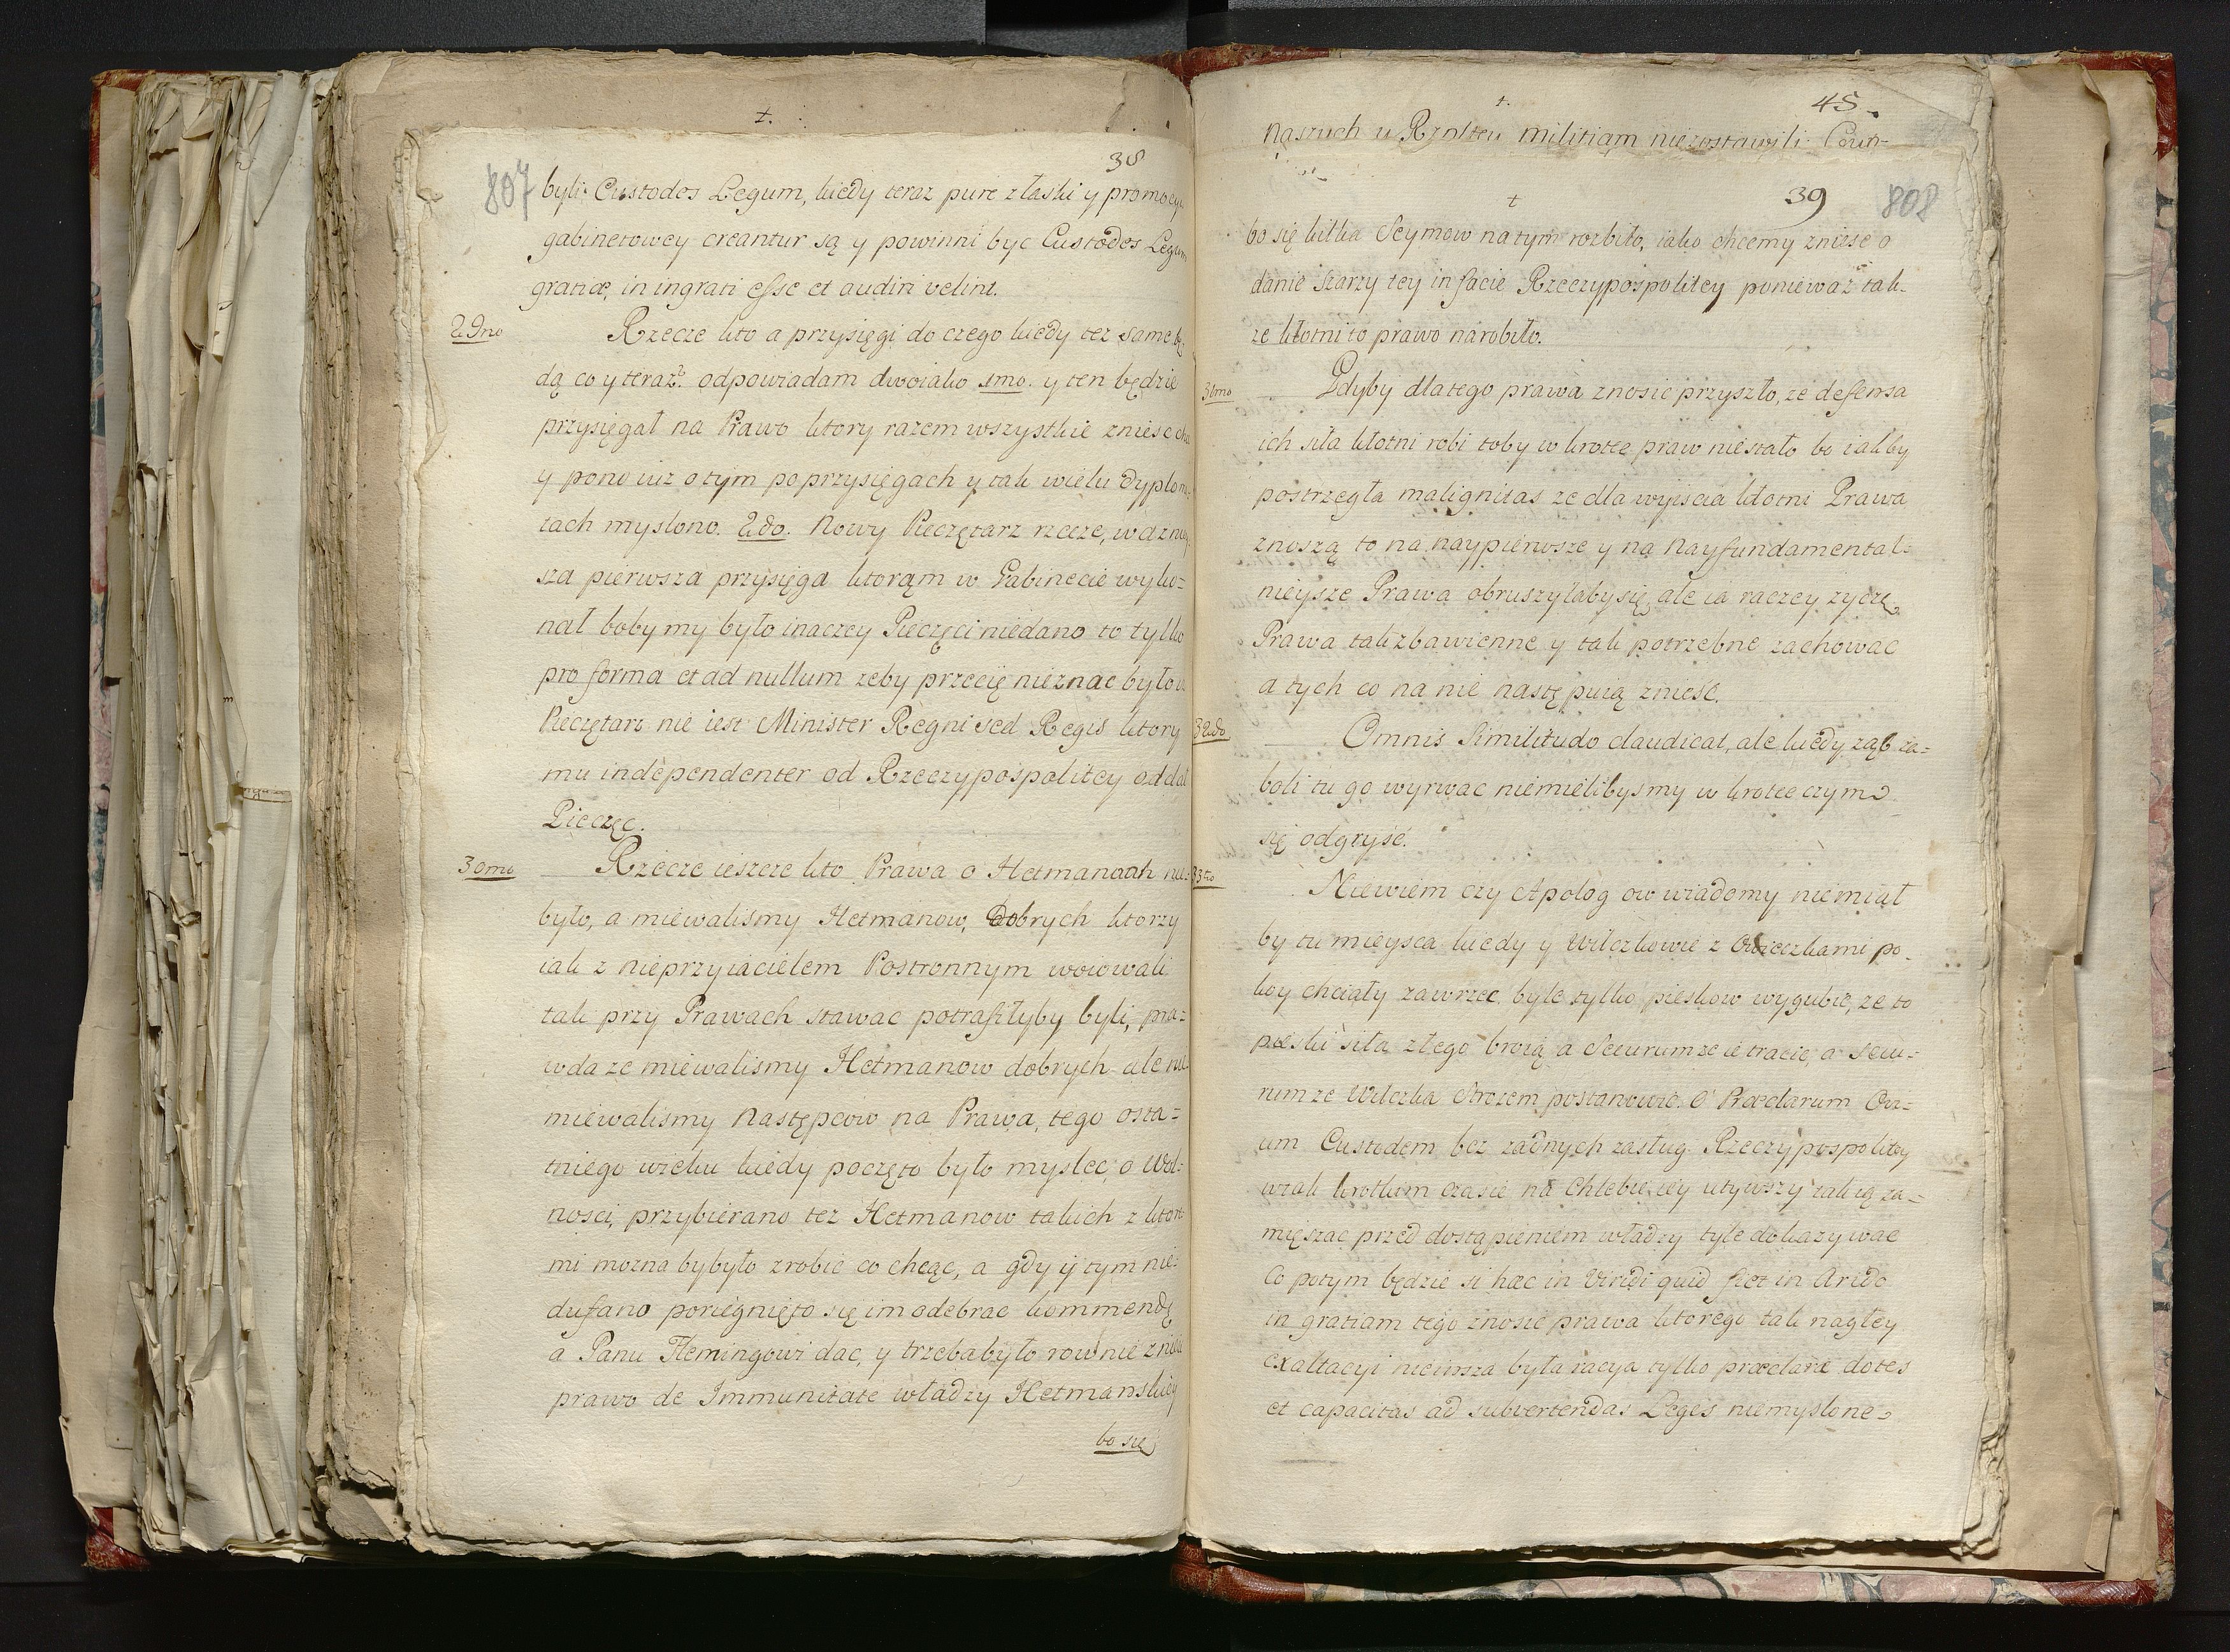 †.
38
807
byli Custodes Legum, kiedy teraz pure z łaski y promocyi
gabinetowey creantur są y powinni byc Custodes Legum
gratiæ, in ingrati esse et audiri velint.
29no
Rzecze kto a przysięgi do czego kiedy tez same bę-
dą co y teraz? odpowiadam dwoiako 1mo. y ten będzie
przysięgał na Prawo ktory razem wszystkie zniesc chce
y pono iuz o tym po przysięgach y tak wielu dyplom-
tach myslono. 2do. Nowy Pieczętarz rzecze, wdzniey-
sza pierwsza przysięga ktorąm w Gabinecie wyko=
nał boby my było inaczey Pieczęci niedano to tylko
pro forma et ad nullum zeby przecię nieznac było
Pieczętarz nie iest Minister Regni sed Regis ktory
mu independenter od Rzeczypospolitey oddał
Pieczęc.
30mo
Rzecze ieszcze kto Prawa o Hetmanach nie=
było, a miewalismy Hetmanow, Dobrych ktorzy
iak z nieprzyiacielem Postronnym woiowali
tak przy Prawach stawac potrafiłyby byli, pra=
wda ze miewalismy Hetmanow dobrych ale nie
miewalismy Następcow na Prawa, tego osta=
tniego wieku kiedy poczęto było myslec, o Wol=
nosci, przybierano tez Hetmanow takich z ktory
mi mozna bybyło zrobic co chcąc, a gdy y tym nie=
dufano porięgnięto się im odebrac kommendę
a Panu Flemingowi dac, y trzebabyło rownie zniesc
prawo de Immunitate władzy Hetmanskiey
bo się
†.
45.
naszych w Rzpltey militiam niezostawili. Coun-
†
39
808
bo się kilka Seymow na tym rozbiło, iako chcemy zniesc o
danie szarzy tey in facie Rzeczypospolitey poniewaz tak-
ze kłotni to prawo narobiło.
31mo
Gdyby dlatego prawa znosic przyszło, ze defensa
ich siła kłotni robi toby w krotce praw niestało bo iakby
postrzegła malignitas ze dla wyiscia kłotni Prawa
znoszą to na naypierwsze y na Nayfundamental=
nieysze Prawa obruszyłabysię, ale ia raczey zyczę
Prawa tak zbawienne y tak potrzebne zachowac
a tych co na nie następuią zniesc.
32do
Omnis Similitudo claudicat, ale kiedy ząb za=
boli tu go wyrwac niemielibysmy w krotce czym
się odgryść.
33tio
Niewiem czy Apolog ow wiadomy niemiał
by tu mieysca kiedy y Wilczkowie z Owieczkami po-
koy chciały zawrzec byle tylko pieskow wygubic, ze to
pieski siła złego broią a Securumze ie tracic, a Secu=
rumze Wilczka Strozem postanowic. O Præclarum Ovi=
um Custodem bez zadnych zasług Rzeczypospolitey
wzak krotkim czasie na Chlebie iey utywszy tak ią za=
mięszac przed dostąpieniem władzy tyle dokazywac
Co potym będzie si hæc in Viridi quid fiet in Arido
in gratiam tego znosic prawa ktorego tak nagłey
exaltacyi nieinsza była racya tylko præclaræ dotes
et capacitas ad subvertendas Leges niemyslone